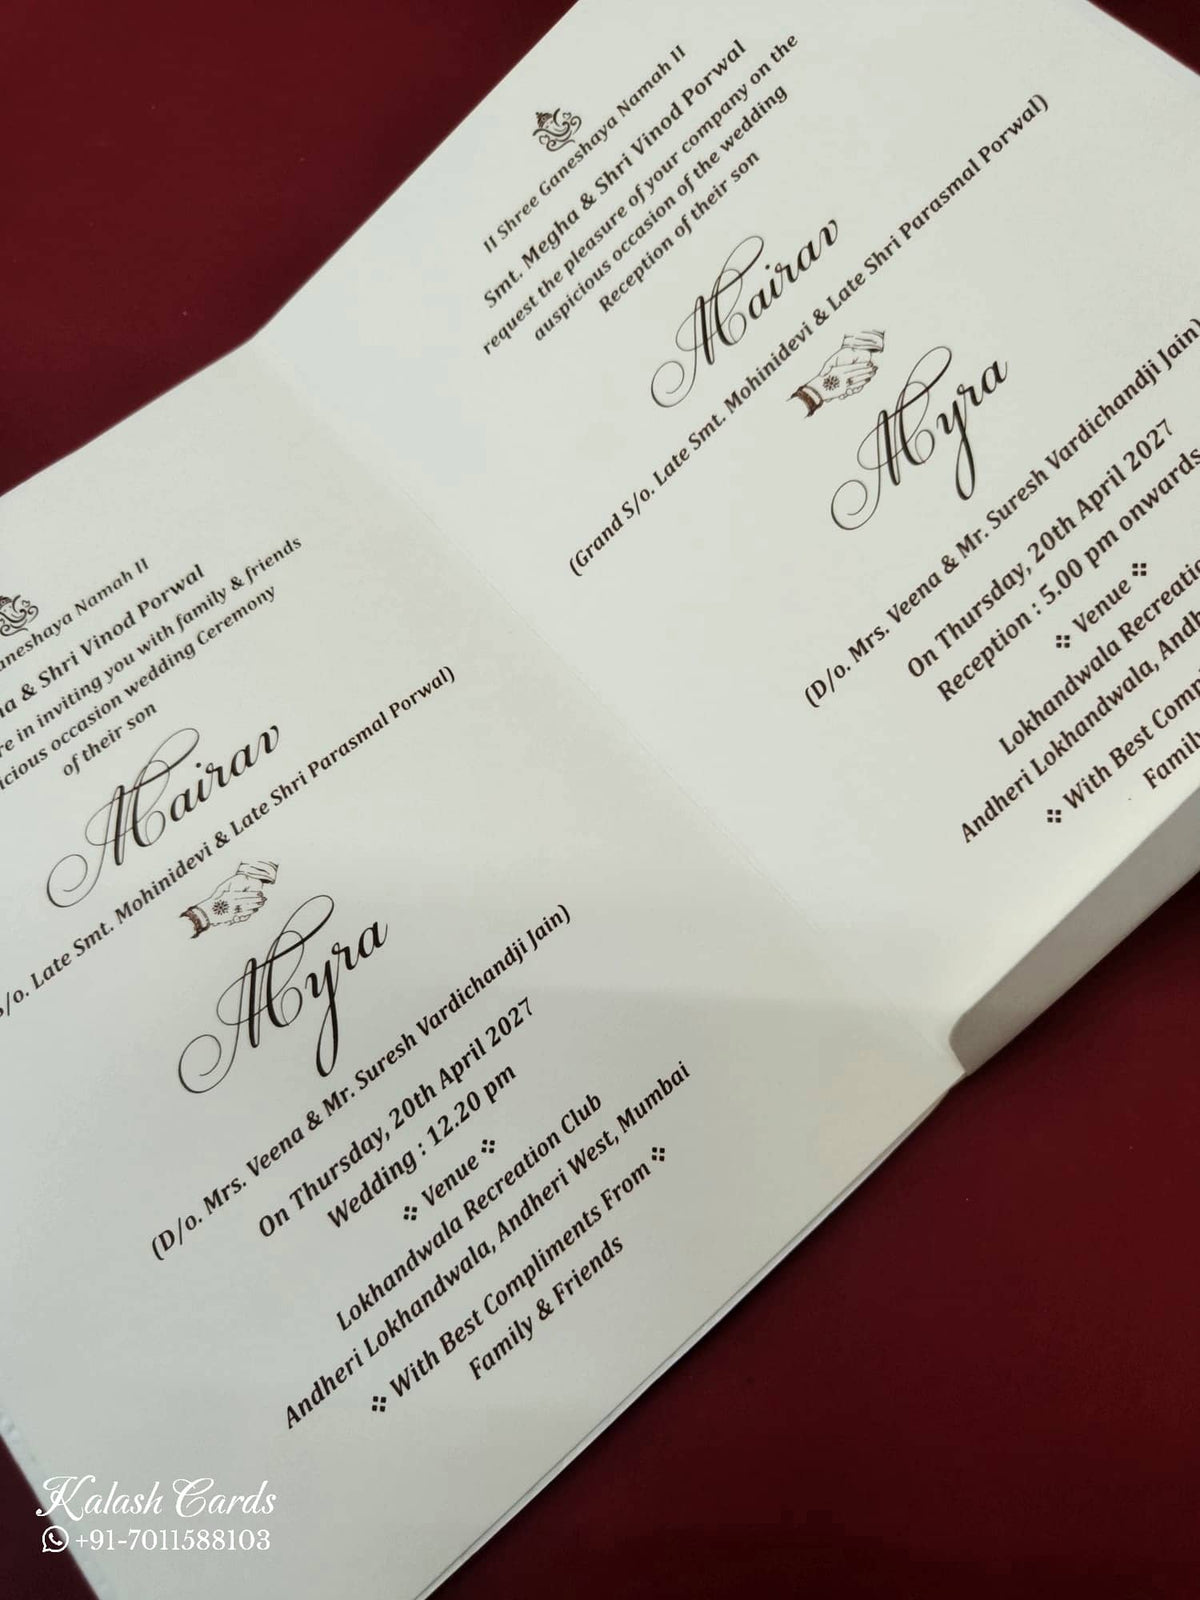 aneshaya Namah II
a & Shri Vinod Porwal
re in inviting you with family & friends
icious occasion wedding Ceremony
of their son
Mairav
S/o. Late Smt. Mohinidevi & Late Shri Parasmal Porwal)
Myra
(D/o. Mrs. Veena & Mr. Suresh Vardichandji Jain)
On Thursday, 20th April 2027
Wedding : 12.20 pm
Venue
Lokhandwala Recreation Club
Andheri Lokhandwala, Andheri West, Mumbai
With Best Compliments From
Family & Friends
II Shree Ganeshaya Namah II
Smt. Megha & Shri Vinod Porwal
request the pleasure of your company on the
auspicious occasion of the wedding
Reception of their son
Mairav
(Grand S/o. Late Smt. Mohinidevi & Late Shri Parasmal Porwal)
Myra
(D/o. Mrs. Veena & Mr. Suresh Vardichandji Jain)
On Thursday, 20th April 2027
Reception : 5.00 pm onwards
Venue
Lokhandwala Recreatio
Andheri Lokhandwala, Andh
With Best Comp
Family
Kalash Cards
+91-7011588103